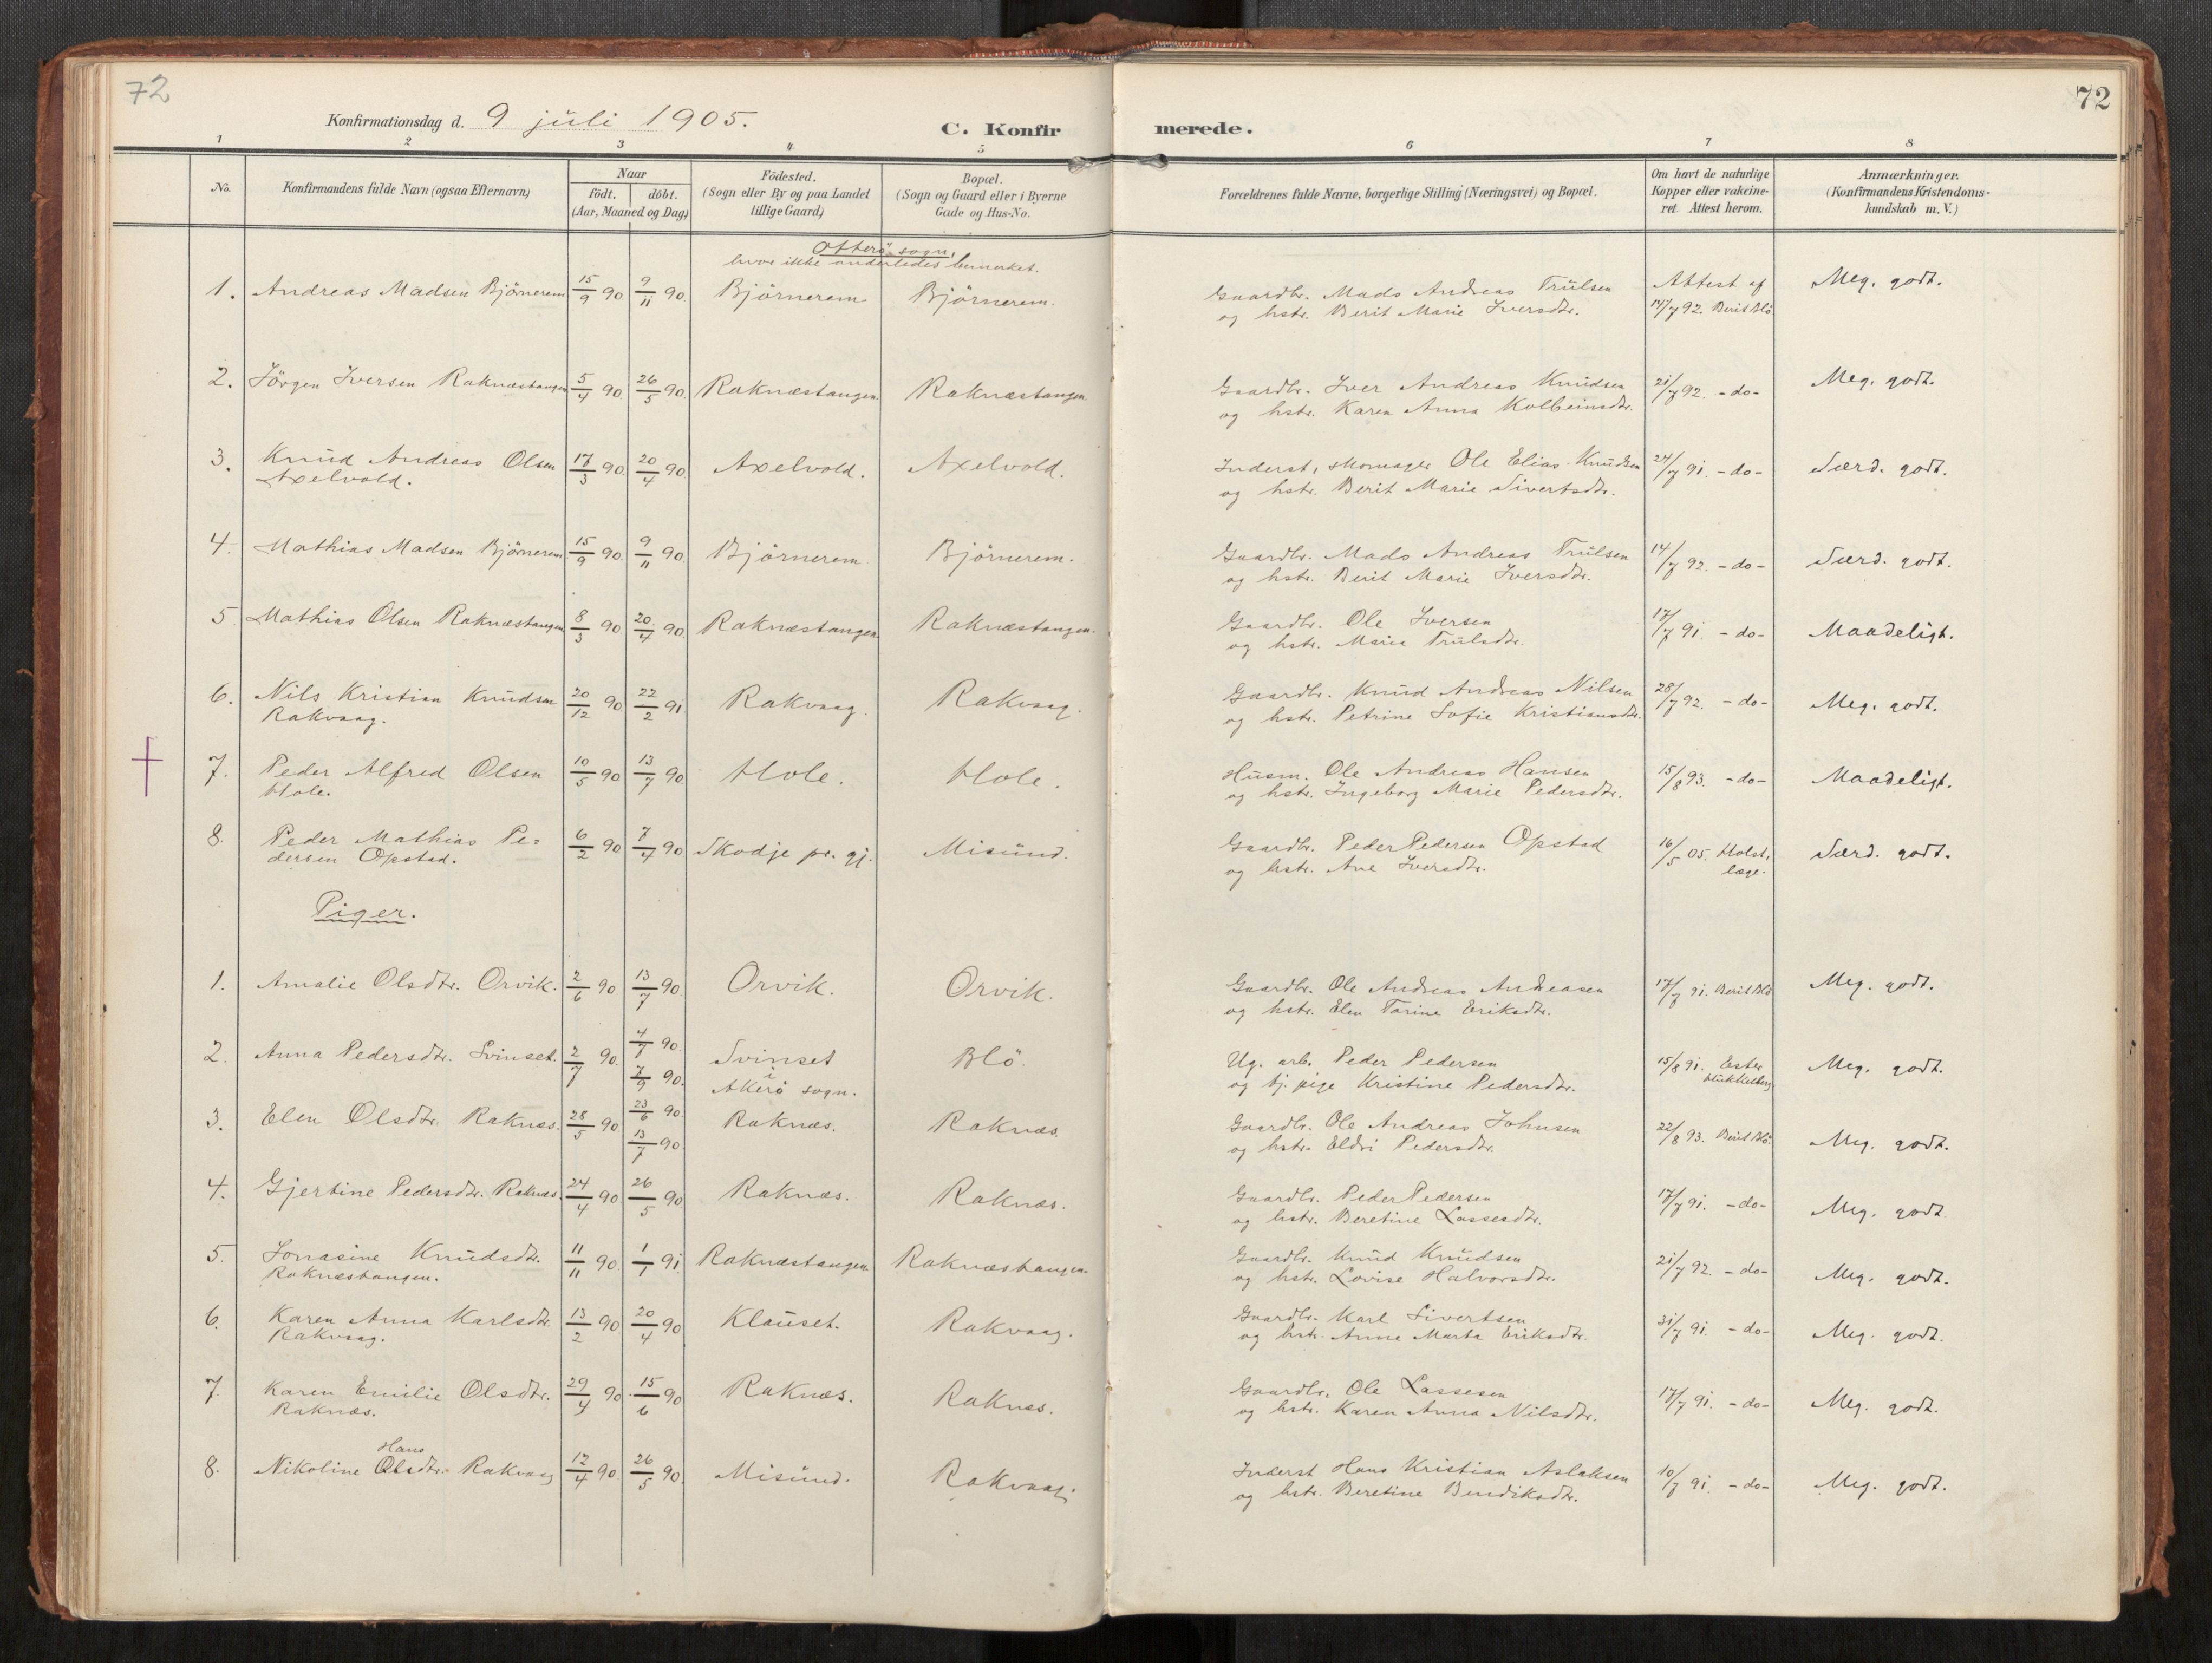 72
72
Konfirmationsdag d. 9 juli 1905.
C. Konfirmerede.
1 2 3 4 5 6 7 8
No.
Konfirmandens fulde Navn (ogsaa Efternavn)
Naar
födt. döbt.
(Aar, Maaned og Dag)
Födested.
(Sogn eller By og paa Landet
tillige Gaard)
Bopæl.
(Sogn og Gaard eller i Byerne
Gade og Hus-No.
Forældrenes fulde Navne, borgerlige Stilling (Næringsvei) og Bopæl.
Om havt de naturlige
Kopper eller vakcine-
ret. Attest herom.
Anmærkninger.
(Konfirmandens Kristendoms-
kundskab m. V.)
Otterö sogn,
hvor ikke anderledes bemerket.
1. Andreas Madsen Björnerem 15/9 90 9/11 90. Björnerem Björnerem. Gaardbr. Mads Andreas Trulsen Attest af Meg. godt.
og hstr. Berit Marie Iversdtr. 14/7 92. Berit Blö
2. Jörgen Iversen Raknæstangen 5/4 90 26/5 90. Raknæstangen. Raknæstangen. Gaardbr. Iver Andreas Knudsen 21/7 92. -do- Meg. godt.
og hstr. Karen Anna Kolbeinsdtr.
3. Knud Andreas Olsen 17/3 90 20/4 90. Axelvold. Axelvold. Inderst, skomager Ole Elias Knudsen 24/7 91. -do- Særd. godt.
Axelvold. og hstr. Berit Marie Sivertsdtr.
4. Mathias Madsen Björnerem 15/9 90. 9/11 90. Björnerem. Björnerem. Gaardbr. Mads Andreas Trulsen 14/7 92. -do- Særd. godt.
og hstr. Berit Marie Iversdtr.
5. Mathias Olsen Raknæstangen 8/3 90 20/4 90. Raknæstangen. Raknæstangen. Gaardbr. Ole Iversen 17/7 91. -do- Maadeligt.
og hstr. Marie Trulsdtr.
6. Nils Kristian Knudsen 20/12 90 22/2 91 Rakvaag. Rakvaag. Gaardbr. Knud Andreas Nilsen 28/7 92. -do- Meg. godt.
Rakvaag. og hstr. Petrine Sofie Kristiansdtr.
7. Peder Alfred Olsen 10/5 90 13/7 90 Hole. Hole. Husm. Ole Andreas Hansen 15/8 93. -do- Maadeligt.
Hole. og hstr. Ingeborg Marie Pedersdtr.
8. Peder Mathias Pe- 6/2 90 7/4 90 Skodje pr. gj. Misund. Gaardbr. Peder Pedersen Opstad 16/5 05. Holst, Særd. godt.
dersen Opstad. og hstr. Ane Iversdtr. læge.
Piger.
1. Amalie Olsdtr. Orvik. 2/6 90 13/7 90 Orvik. Orvik. Gaardbr. Ole Andreas Andreasen 17/7 91. Berit Blö Meg. godt.
og hstr. Elen Torine Eriksdtr.
2. Anna Pedersdtr. Svinset. 2/7 90. 4/7 90. 7/9 90. Svinset Blö. Ug. arb. Peder Pedersen 15/8 91. Ester Meg. godt.
i Akerö sogn. og tj. pige Kristine Pedersdtr.
3. Elen Olsdtr. Raknæs. 28/5 90 23/6 90 13/7 90 Raknæs. Raknæs. Gaardbr. Ole Andreas Johnsen 22/8 93. Berit Blö Meg. godt.
og hstr. Eldri Pedersdtr.
4. Gjertine Pedersdtr. Raknæs. 24/4 90 26/5 90 Raknæs. Raknæs. Gaardbr. Peder Pedersen 17/7 91. -do- Meg. godt.
og hstr. Beretine Lassesdtr.
5. Jonasine Knudsdtr. 11/11 90. 1/1 91 Raknæstangen. Raknæstangen. Gaardbr. Knud Knudsen 21/7 92. -do- Meg. godt.
Raknæstangen. og hstr. Lovise Halvorsdtr.
6. Karen Anna Karlsdtr. 13/2 90 20/4 90 Klauset. Rakvaag. Gaardbr. Karl Sivertsen 31/7 91. -do- Meg. godt.
Rakvaag. og hstr. Anne Marta Eriksdtr.
7. Karen Emilie Olsdtr. 29/4 90. 15/6 90 Raknæs. Raknæs. Gaardbr. Ole Lassesen 17/7 91. -do- Meg. godt.
Raknæs. og hstr. Karen Anna Nilsdtr.
Hans
8. Nikoline Olsdtr. Rakvaag 12/4 90. 26/5 90. Misund. Rakvaag. Inderst Hans Kristian Aslaksen 10/7 91. -do- Meg. godt.
og hstr. Beretine Bendiksdtr.